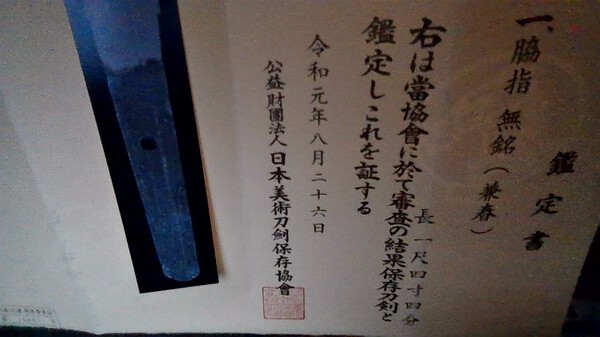 鑑定書
一、脇指 無銘（兼春）
長一尺四寸四分
右は當協會に於て審査の結果保存刀剣と
鑑定しこれを証する
令和元年八月二十六日
公益財團法人 日本美術刀剣保存協會